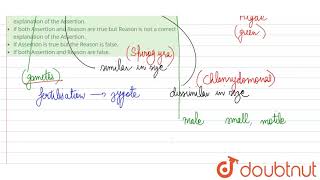 explanation of the Assertion.
• If both Assertion and Reason are true but Reason is not a correct
explanation of the Assertion.
• If Assertion is true but the Reason is false.
• If both Assertion and Reason are false.
Algae
(green)
(Spirogyra)
(gametes)
similar in size
(Chlamydomonas)
fertilisation → zygote
dissimilar in size
male small, motile
doubtnut